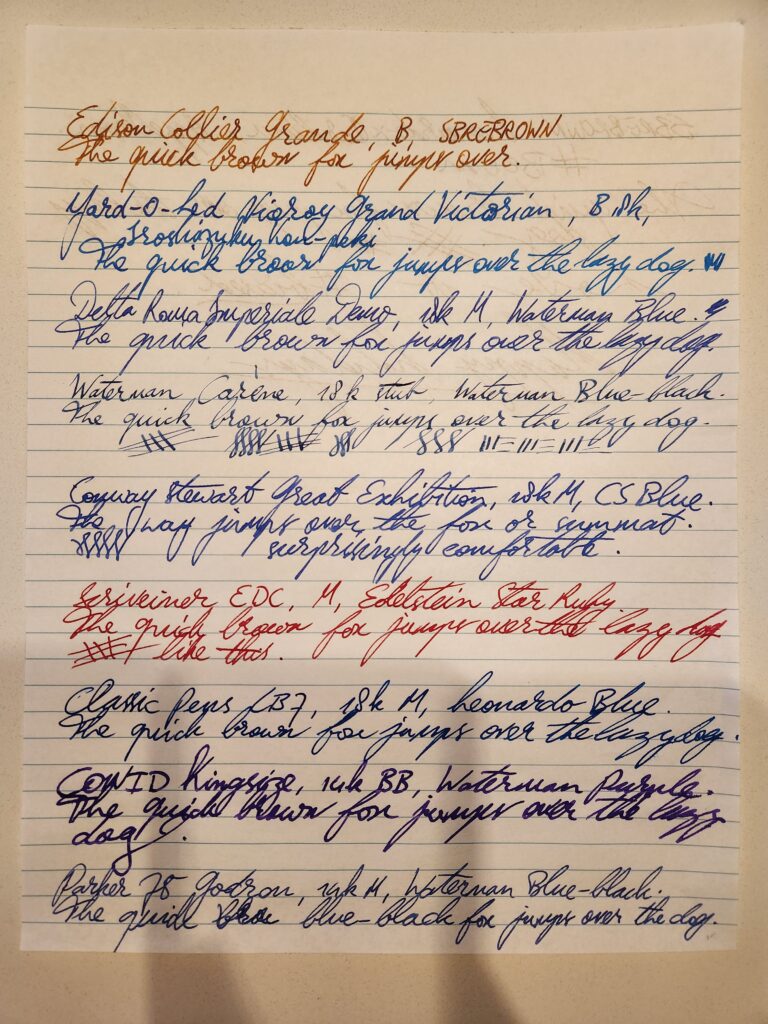 Edison Collier Grande, B, SBREBROWN
The quick brown fox jumps over.
Yard-O-Led Viceroy Grand Victorian, B 18k,
Iroshizuku kon-peki
The quick brown fox jumps over the lazy dog.
Delta Roma Imperiale Demo, 18k M, Waterman Blue.
The quick brown fox jumps over the lazy dog.
Waterman Carène, 18k stub, Waterman Blue-black.
The quick brown fox jumps over the lazy dog.
Conway Stewart Great Exhibition, 18k M, CS Blue.
The way jumps over the fox or summat.
surprisingly comfortable.
Scriveiner EDC, M, Edelstein Star Ruby.
The quick brown fox jumps over the lazy dog
like this.
Classic Pens LB7, 18k M, Leonardo Blue.
The quick brown fox jumps over the lazy dog.
CONID Kingsize, 14k BB, Waterman Purple.
The quick brown fox jumps over the lazy
dog.
Parker 75 Godron, 14k M, Waterman Blue-black.
The quick blue-black fox jumps over the dog.